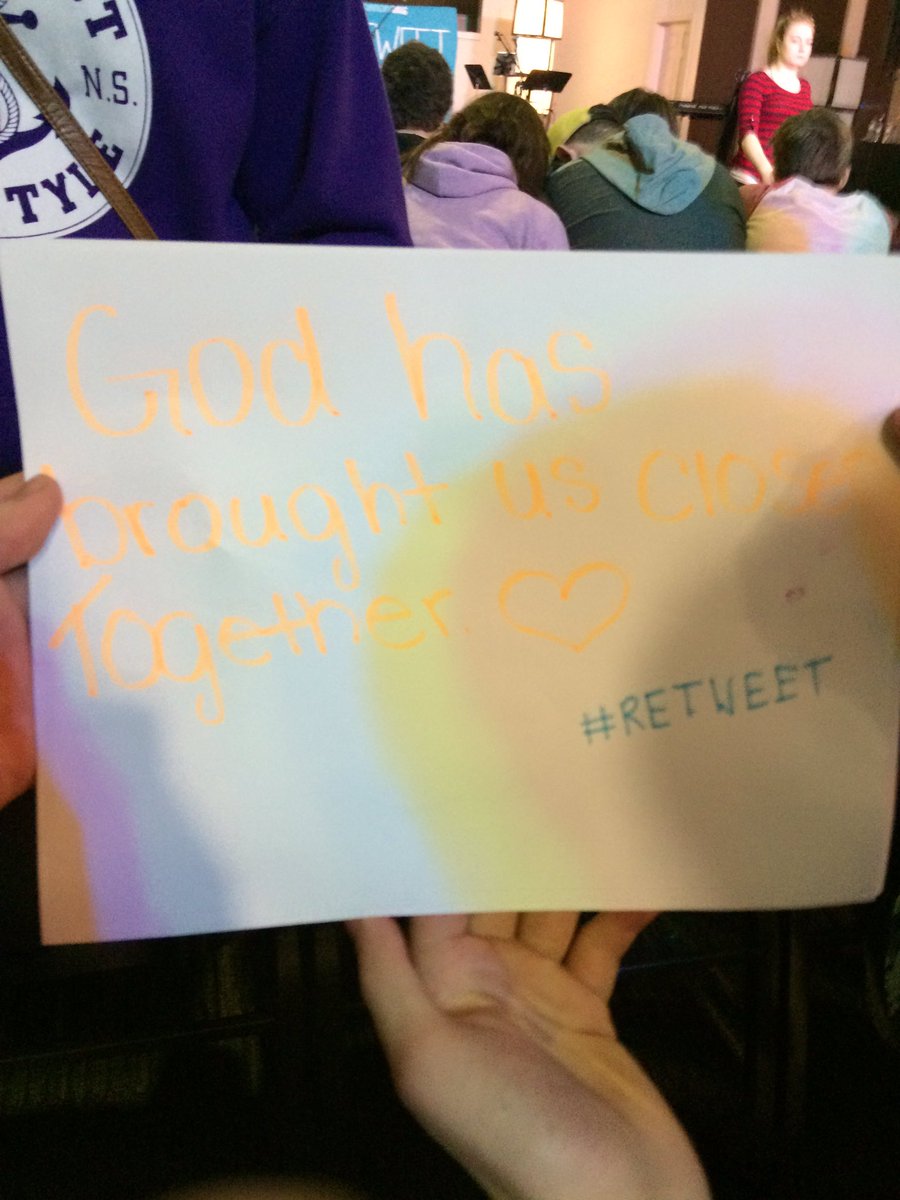 T
N.S.
TYLE
TWEET
God has
brought us closer
Together.
#RETWEET